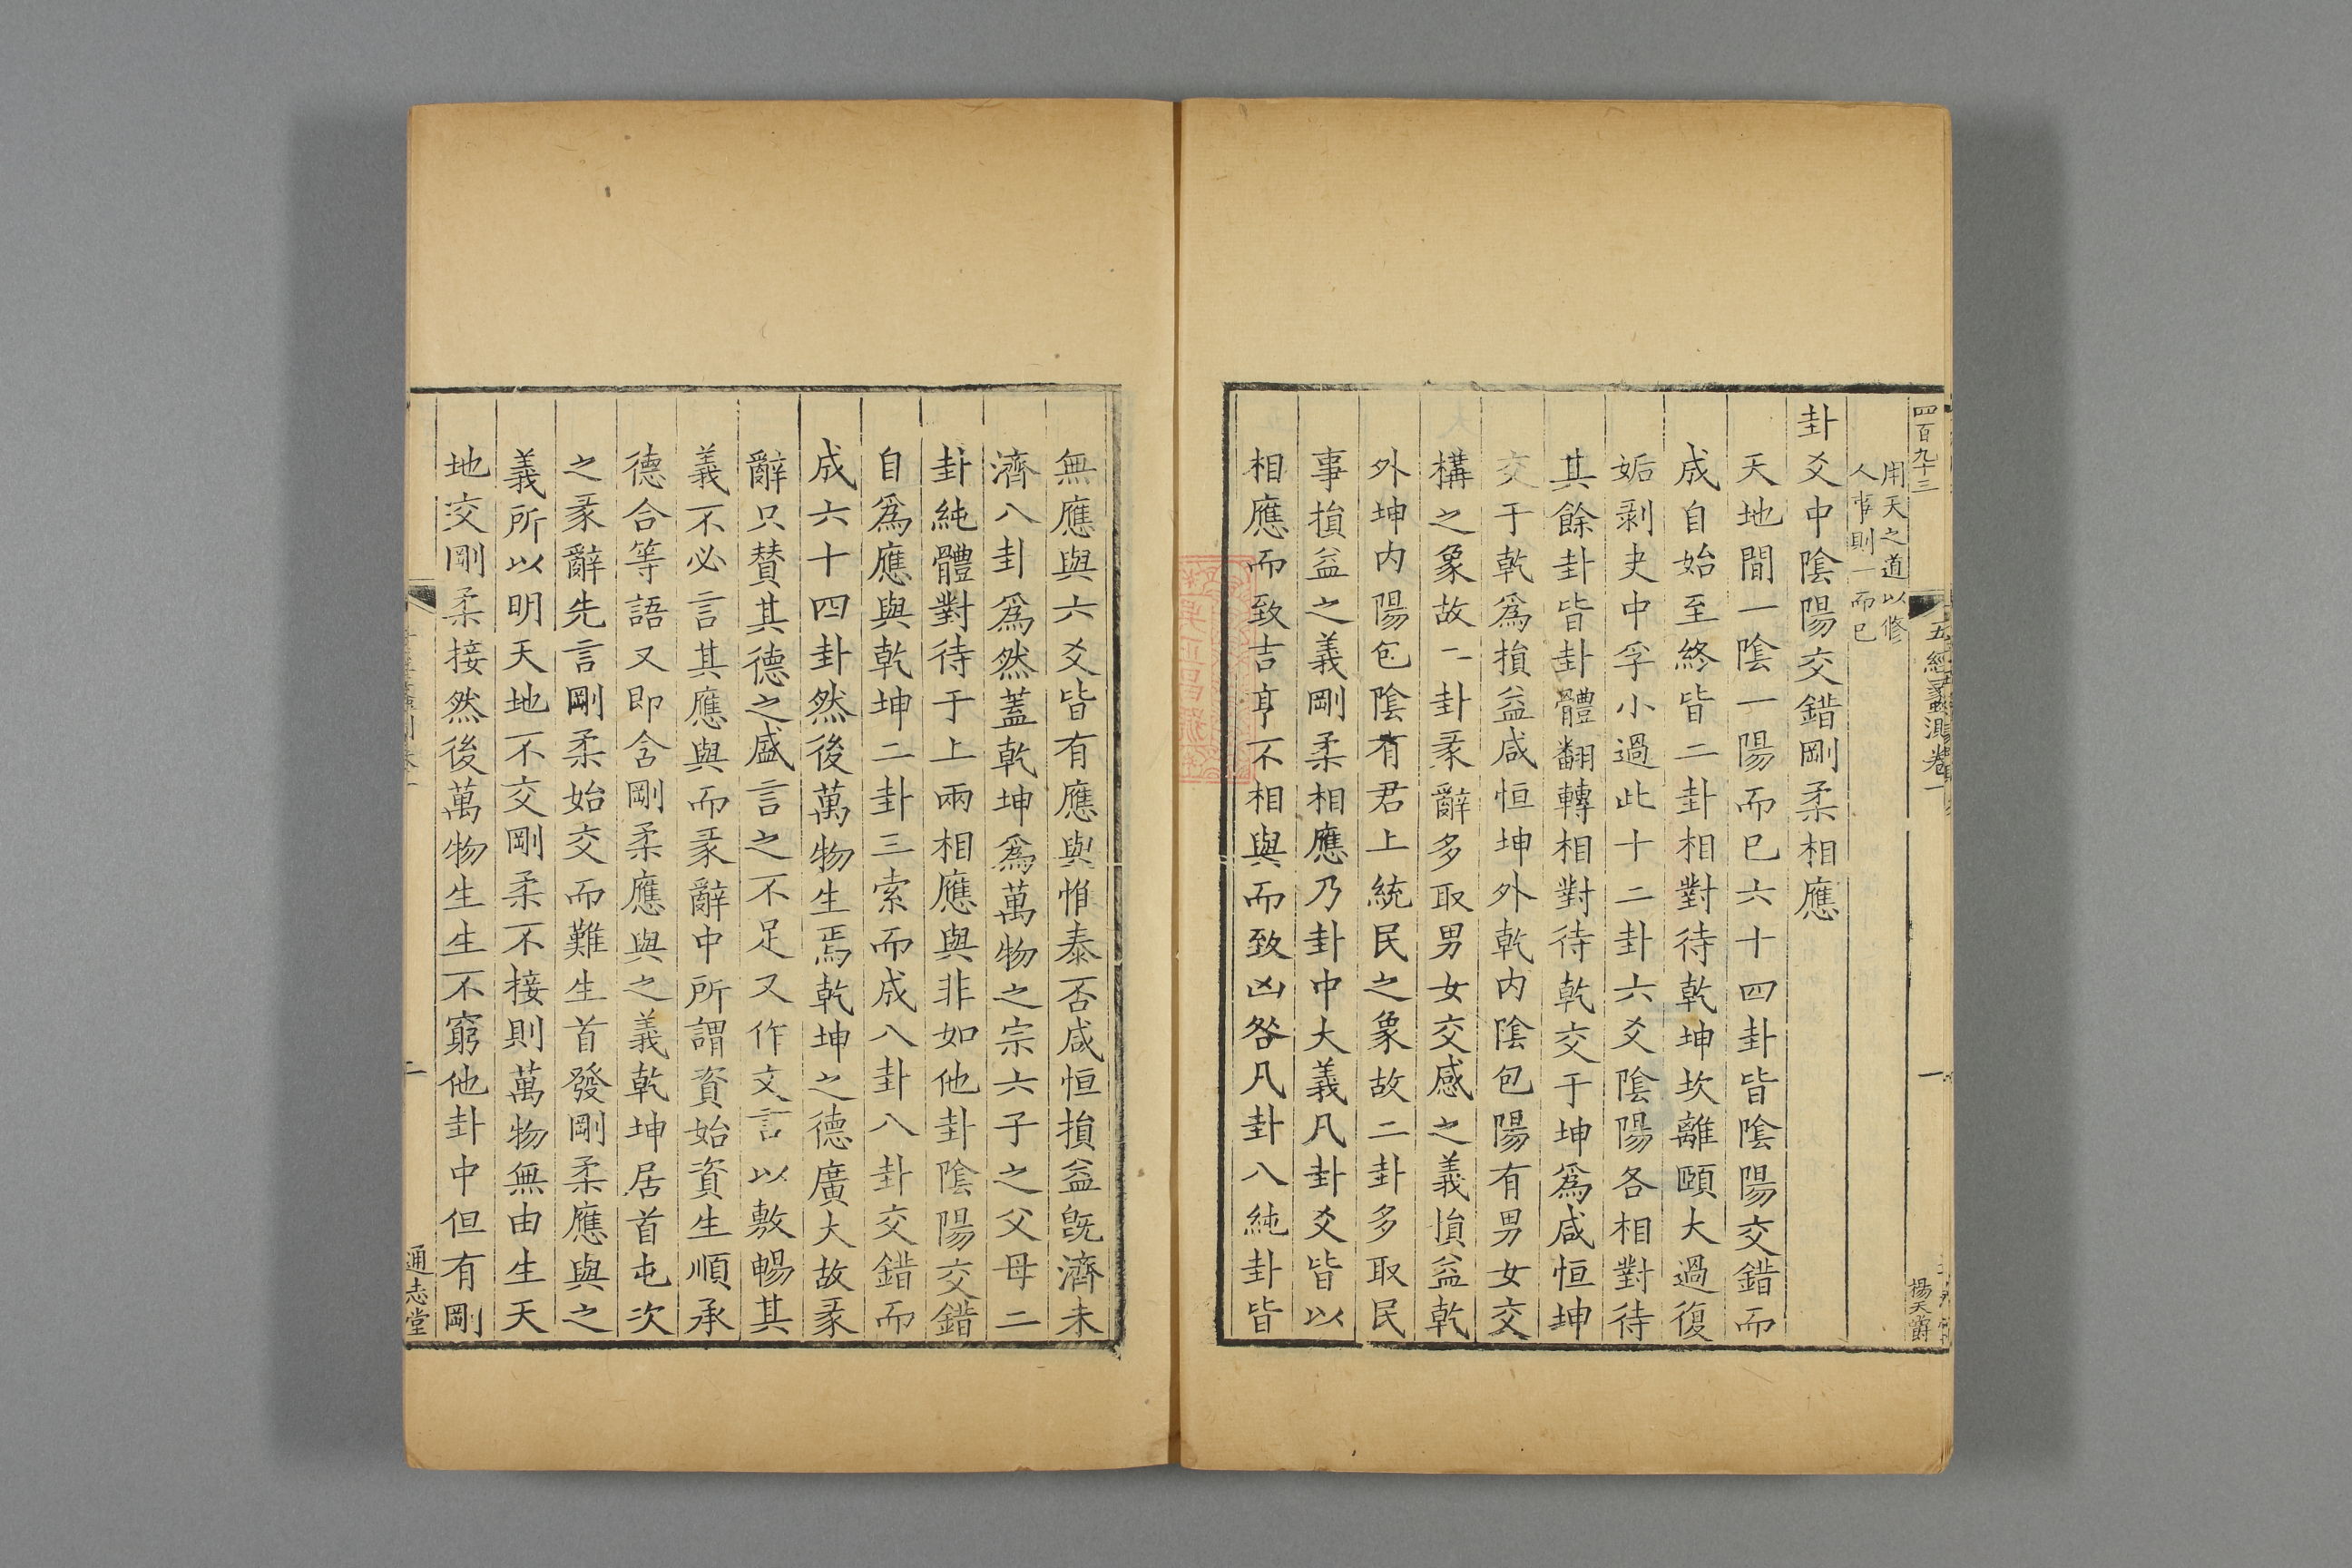 四百九十三
五經蠡測卷一
一
楊天爵
用天之道以修
人事則一而已
卦爻中陰陽交錯剛柔相應
天地間一陰一陽而已六十四卦皆陰陽交錯而
成自始至終皆二卦相對待乾坤坎離頤大過復
姤剥夬中孚小過此十二卦六爻陰陽各相對待
其餘卦皆卦體翻轉相對待乾交于坤爲咸恒坤
交于乾爲損益咸恒坤外乾内陰包陽有男女交
構之象故二卦彖辭多取男女交感之義損益乾
外坤内陽包陰有君上統民之象故二卦多取民
事損益之義剛柔相應乃卦中大義凡卦爻皆以
相應而致吉亨不相與而致凶咎凡卦八純卦皆
無應與六爻皆有應與惟泰否咸恒損益旣濟未
濟八卦爲然蓋乾坤爲萬物之宗六子之父母二
卦純體對待于上兩相應與非如他卦陰陽交錯
自爲應與乾坤二卦三索而成八卦八卦交錯而
成六十四卦然後萬物生焉乾坤之德廣大故彖
辭只賛其德之盛言之不足又作文言以敷暢其
義不必言其應與而彖辭中所謂資始資生順承
德合等語又即含剛柔應與之義乾坤居首屯次
之彖辭先言剛柔始交而難生首發剛柔應與之
義所以明天地不交剛柔不接則萬物無由生天
地交剛柔接然後萬物生生不窮他卦中但有剛
二
通志堂